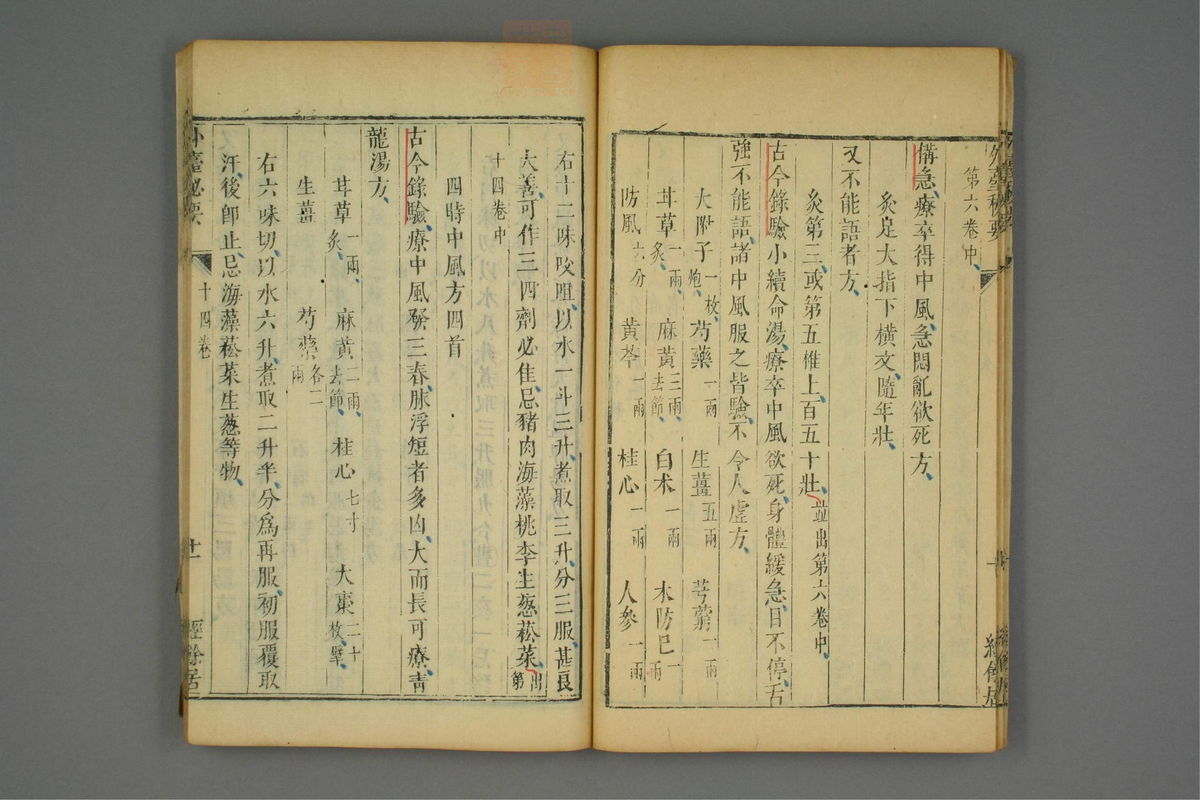 第六卷中
備急療卒得中風急悶亂欲死方
灸足大指下橫文隨年壯
又不能語者方
灸第三或第五椎上百五十壯並出第六卷中
古今錄驗小續命湯療卒中風欲死身體緩急目不停舌
強不能語諸中風服之皆驗不令人虛方
大附子一枚炮 芍藥一兩 生薑五兩 芎藭一兩
甘草一兩炙 麻黃三兩去節 白朮一兩 木防巳一兩
防風六分 黃芩一兩 桂心一兩 人參一兩
右十二味㕮咀以水一斗三升煮取三升分三服甚良
大善可作三四劑必佳忌豬肉海藻桃李生葱菘菜出第
十四卷中
四時中風方四首
古今錄驗療中風發三春脉浮短者多凶大而長可療青
龍湯方
甘草一兩炙 麻黃二兩去節 桂心七寸 大棗二十枚擘
生薑 芍藥各二兩
右六味切以水六升煮取二升半分爲再服初服覆取
汗後卽止忌海藻菘菜生葱等物
外臺祕要 十四卷 十一 經餘居